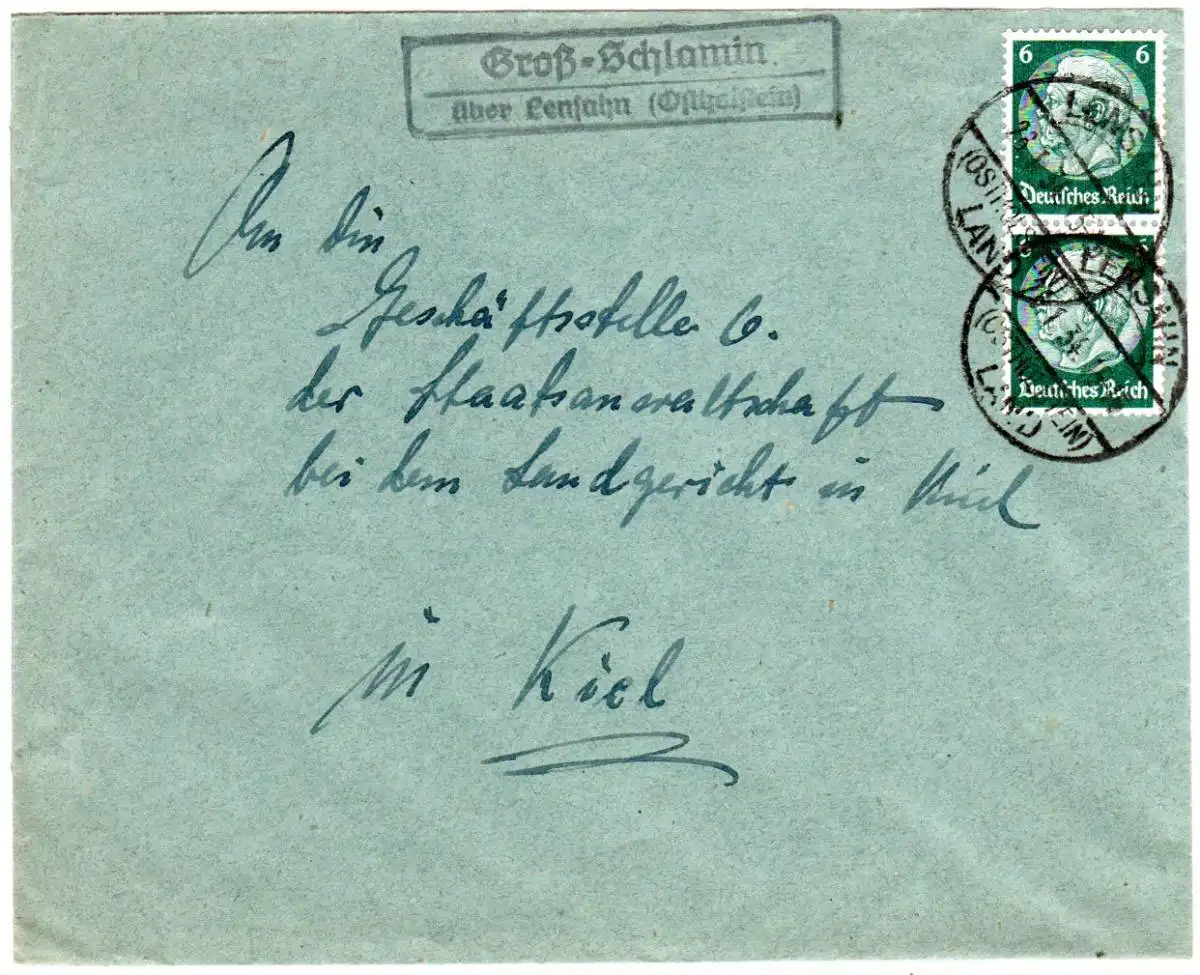 Groß-Schlamin.
über Lensahn (Ostholstein)
6 6
Deutsches Reich
6
Deutsches Reich
LENSAHN
(OSTHOLSTEIN)
LAND
An die
Geschäftsstelle 6.
der Staatsanwaltschaft
bei dem Landgericht in Kiel
in Kiel